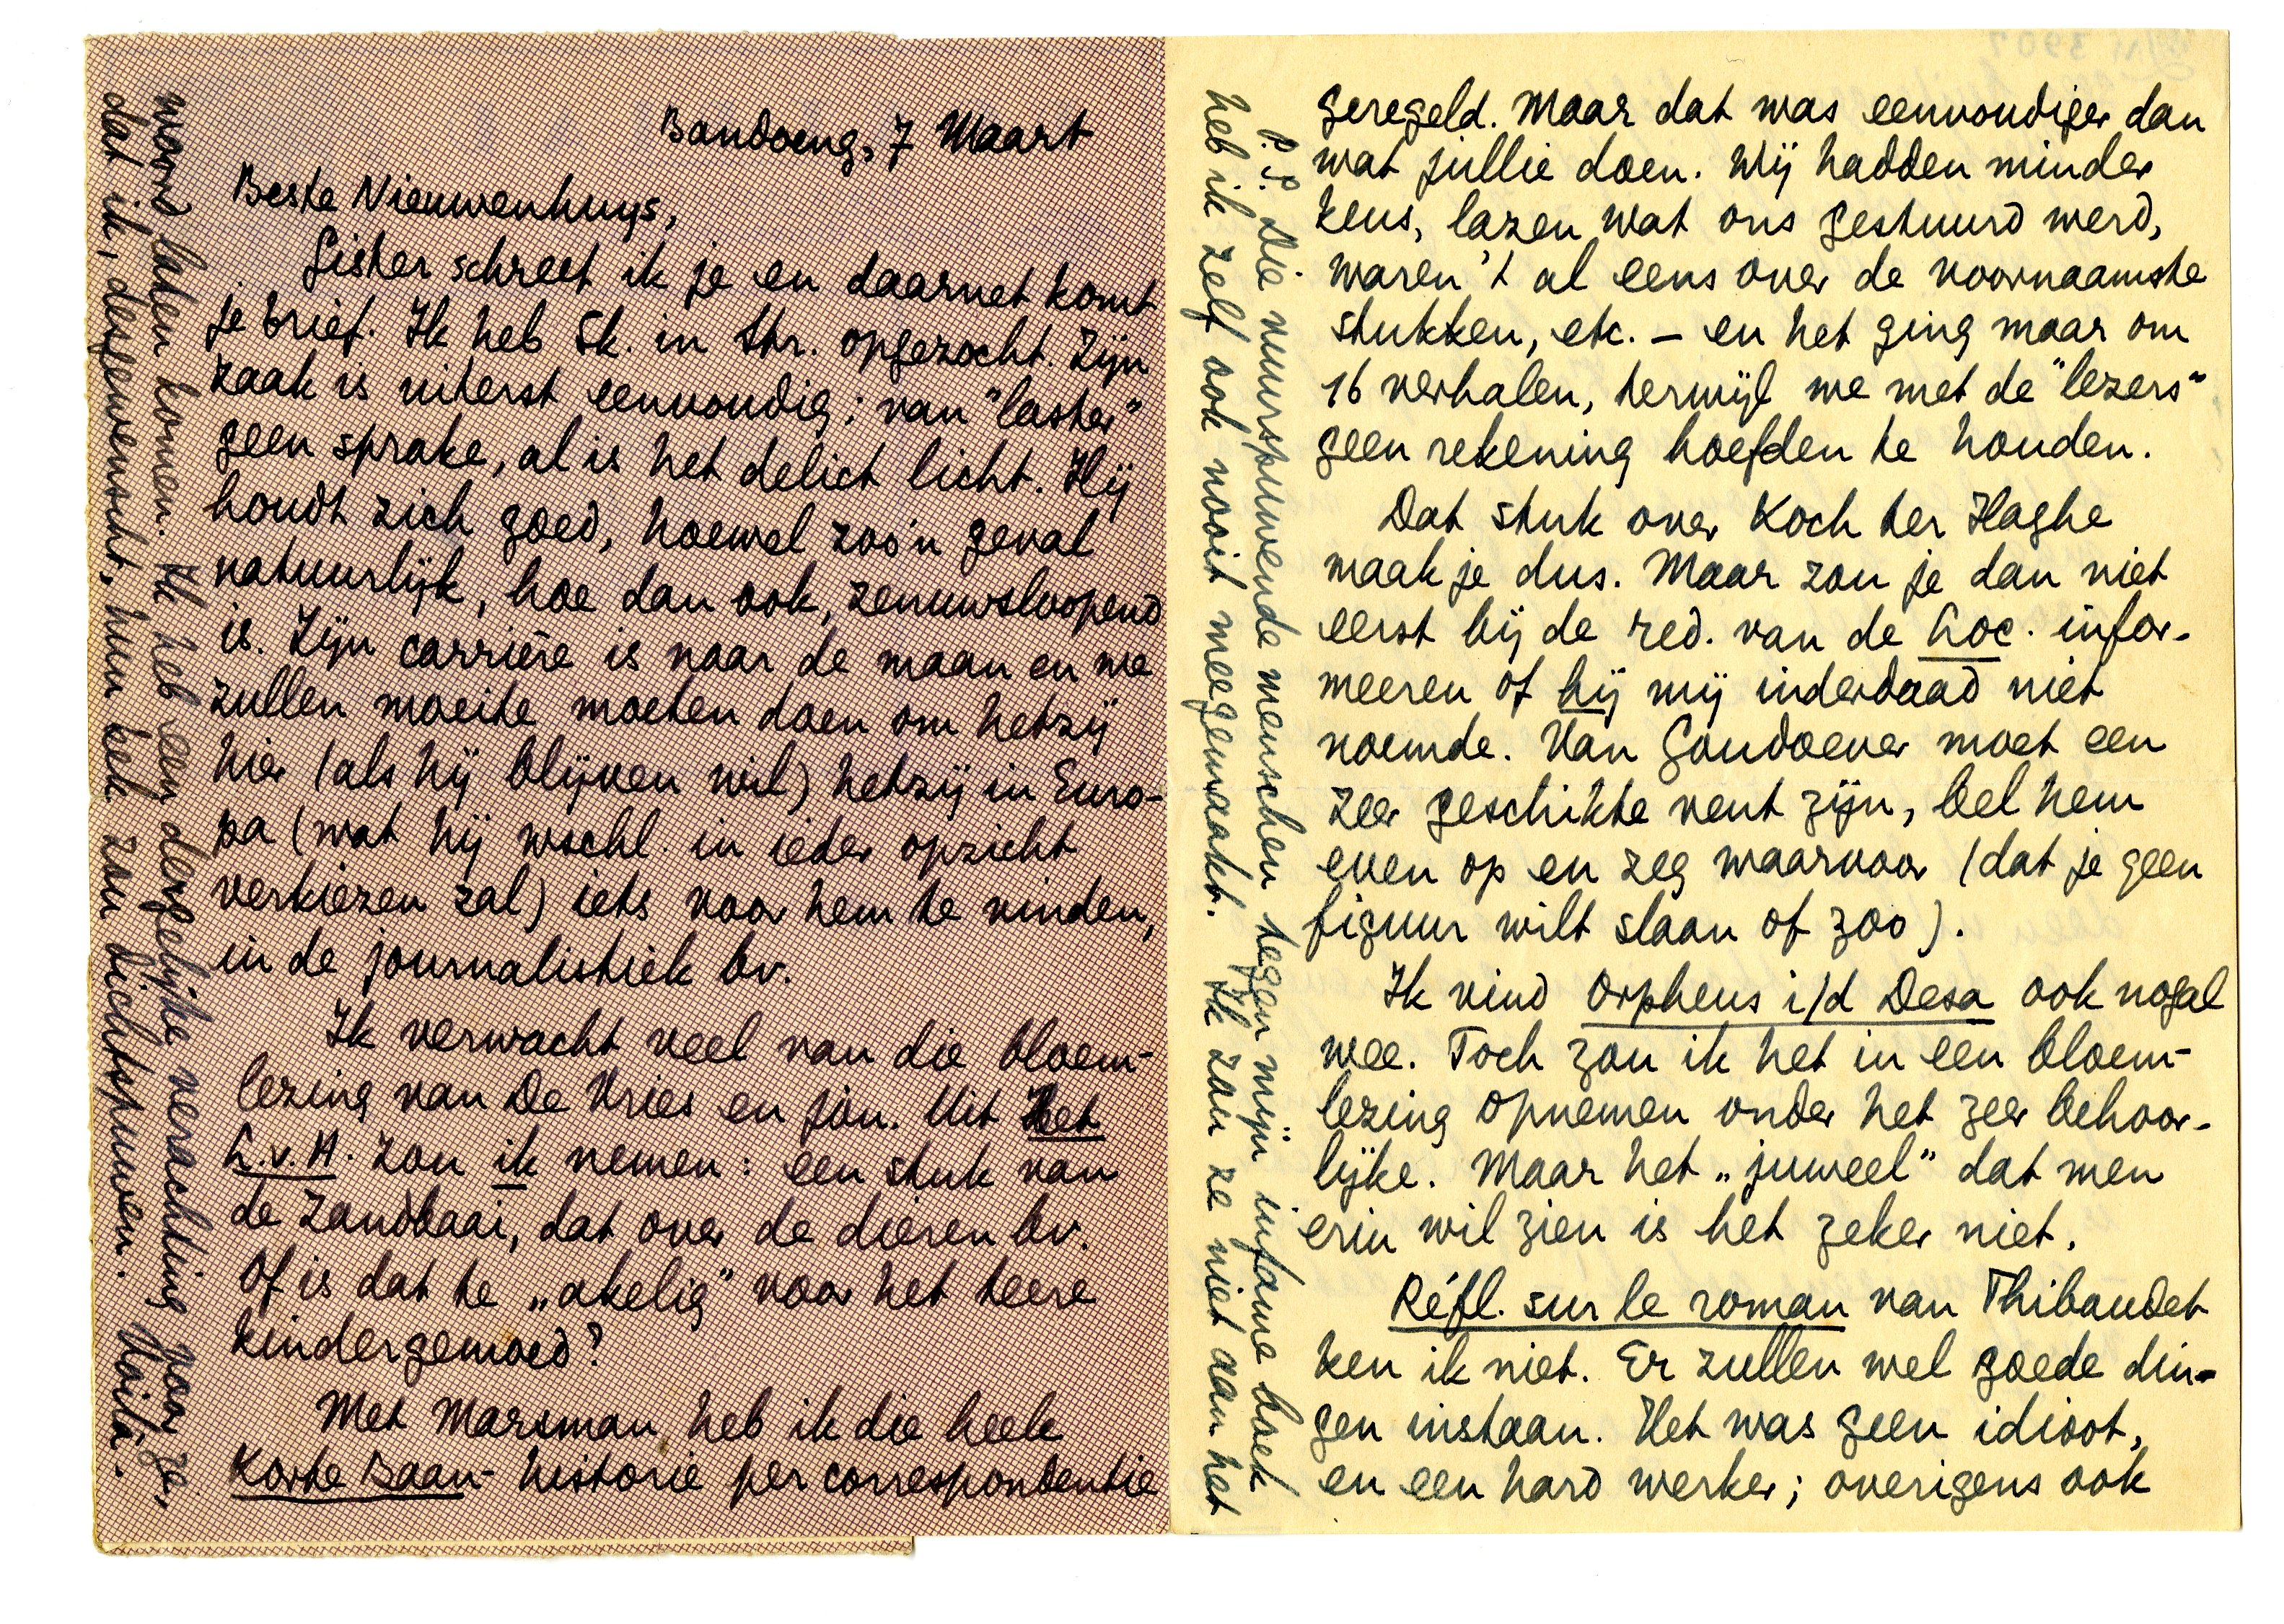 Bandoeng, 7 Maart
Beste Nieuwenhuys,
Gister schreef ik je en daarnet komt
je brief. Ik heb Sk. in Str. opgezocht. Zijn
zaak is uiterst eenvoudig; van "laster"
geen sprake, al is het delict licht. Hij
houdt zich goed, hoewel zoo'n geval
natuurlijk, hoe dan ook, zenuwsloopend
is. Zijn carrière is naar de maan en we
zullen moeite moeten doen om hetzij
hier (als hij blijven wil) hetzij in Euro-
pa (wat hij wschl. in ieder opzicht
verkiezen zal) iets voor hem te vinden,
in de journalistiek bv.
Ik verwacht veel van die bloem-
lezing van De Vries en jou. Uit Het
L.v.H. zou ik nemen: een stuk van
de Zandbaai, dat over de dieren bv.
Of is dat te „akelig" voor het teere
kindergemoed?
Met Marsman heb ik die heele
Korte Baan-historie per correspondentie
geregeld. Maar dat was eenvoudiger dan
wat jullie doen. Wij hadden minder
keus, lazen wat ons gestuurd werd,
waren 't al eens over de voornaamste
stukken, etc. – en het ging maar om
16 verhalen, terwijl we met de "lezers"
geen rekening hoefden te houden.
Dat stuk over Koch ter Haghe
maak je dus. Maar zou je dan niet
eerst bij de red. van de Loc. infor-
meeren of hij mij inderdaad niet
noemde. Van Goudoever moet een
zeer geschikte vent zijn, bel hem
even op en zeg waarvoor (dat je geen
figuur wilt slaan of zoo).
Ik vind Orpheus i/d Desa ook nogal
wee. Toch zou ik het in een bloem-
lezing opnemen onder het zeer behoor-
lijke. Maar het „juweel" dat men
erin wil zien is het zeker niet.
Réfl. sur le roman van Thibaudet
ken ik niet. Er zullen wel goede din-
gen instaan. Het was geen idioot,
en een hard werker; overigens ook
P.S. Die vuurspuwende menschen tegen mijn infame boek
heb ik zelf ook nooit meegemaakt. Ik zou ze niet aan het
woord laten komen. Ik heb een dergelijke verachting voor ze,
dat ik, desgewenscht, hun bek zou dichtspuwen. Voilà.